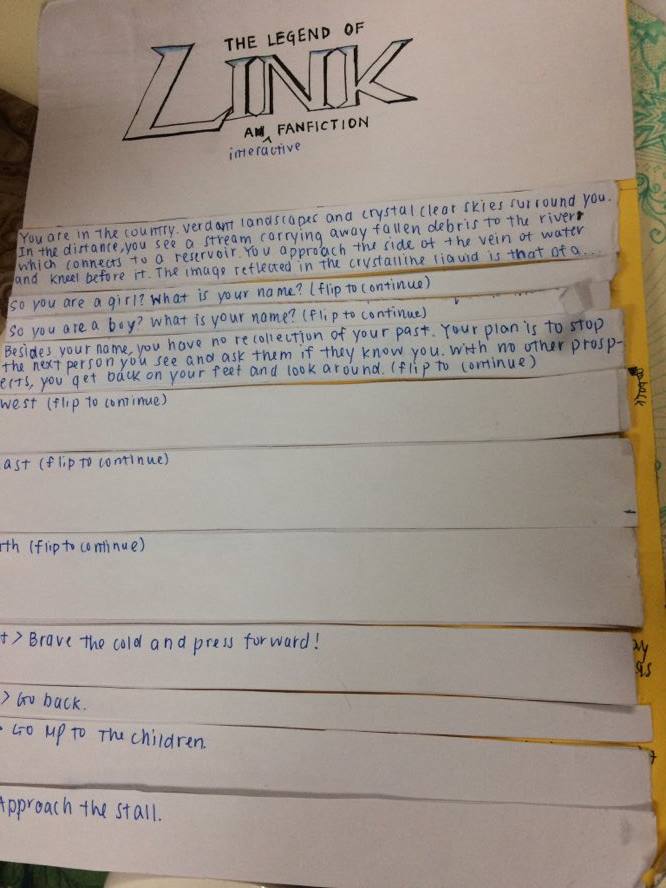 THE LEGEND OF
LINK
AN FANFICTION
interactive
You are in the country. verdant landscapes and crystal clear skies surround you.
In the distance, you see a stream carrying away fallen debris to the river
which connects to a reservoir. You approach the side of the vein of water
and kneel before it. The image reflected in the crystalline liquid is that of a...
So you are a girl? What is your name? (flip to continue)
So you are a boy? What is your name? (flip to continue)
Besides your name, you have no recollection of your past. Your plan is to stop
the next person you see and ask them if they know you. With no other prosp-
ects, you get back on your feet and look around. (flip to continue)
back
west (flip to continue)
ast (flip to continue)
rth (flip to continue)
t > Brave the cold and press forward!
> Go back.
Go up to the children.
Approach the stall.